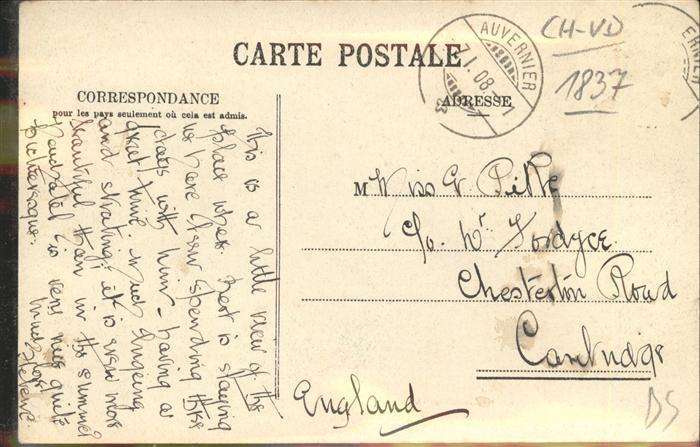 CARTE POSTALE
CORRESPONDANCE
pour les pays seulement où cela est admis.
ADRESSE
AUVERNIER
7. I. 08
CH-VD
1837
This is a little view of the
place where Bert is staying
we have been spending three
days with him - having a
great time much lugeing
and skating; it is even more
beautiful than in the summer
Neuchatel is very nice quite
picturesque. Much love
Miss
c/o. Mr Fordyce
Chesterton Road
Cambridge
England
DS